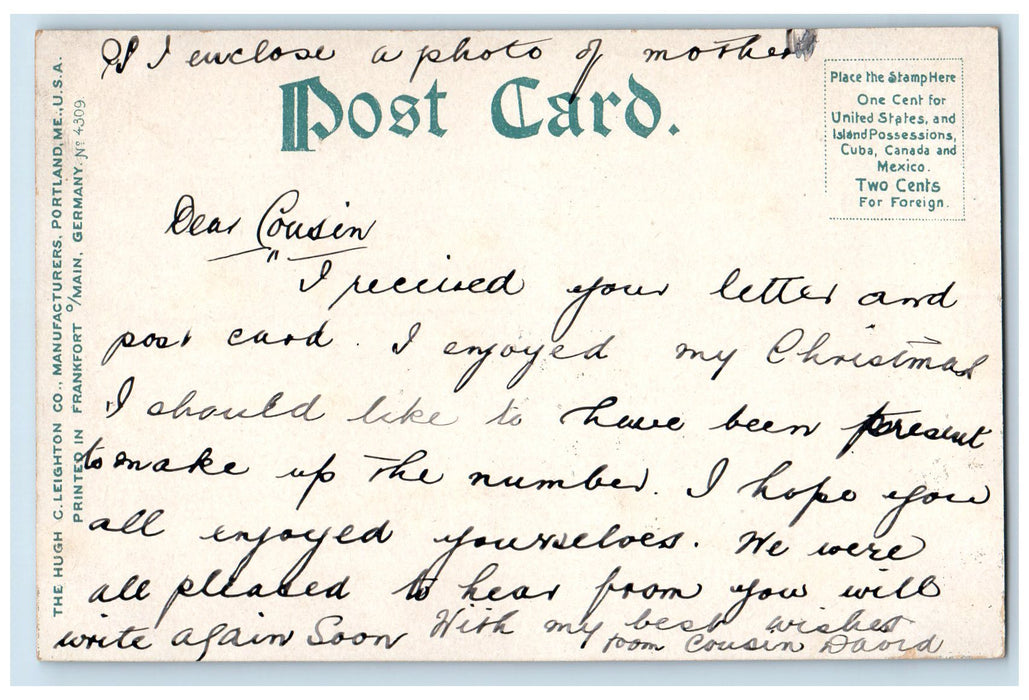 PS I enclose a photo of mother
Post Card.
Place the Stamp Here
One Cent for
United States, and
Island Possessions,
Cuba, Canada and
Mexico.
Two Cents
For Foreign.
THE HUGH C. LEIGHTON CO., MANUFACTURERS, PORTLAND, ME., U.S.A.
PRINTED IN FRANKFORT O/MAIN, GERMANY. No 4309
Dear Cousin
" I received your letter and
post card. I enjoyed my Christmas
I should like to have been present
to make up the number. I hope you
all enjoyed yourselves. We were
all pleased to hear from you will
write again Soon With my best wishes
from Cousin David